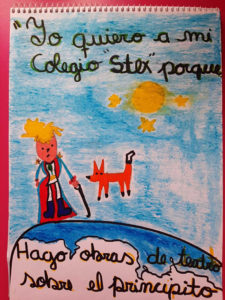 "Yo quiero a mi
Colegio "Stex" porque
Hago obras de teatro
sobre el principito